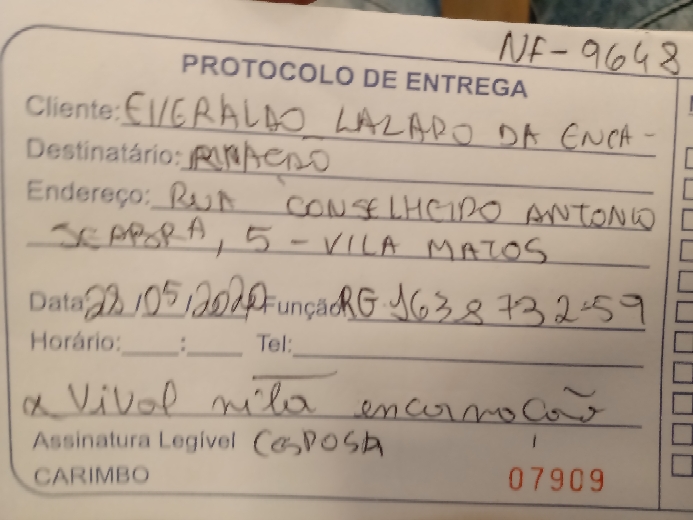 NF-9648
PROTOCOLO DE ENTREGA
Cliente: EVERALDO LAZARO DA ENCA-
Destinatário: RNAÇÃO
Endereço: RUA CONSELHEIRO ANTONIO
SEABRA, 5 - VILA MATOS
Data 28/05/2020 Função RG 1638732-59
Horário: : Tel:
encarnação
Assinatura Legível esposa
CARIMBO 07909